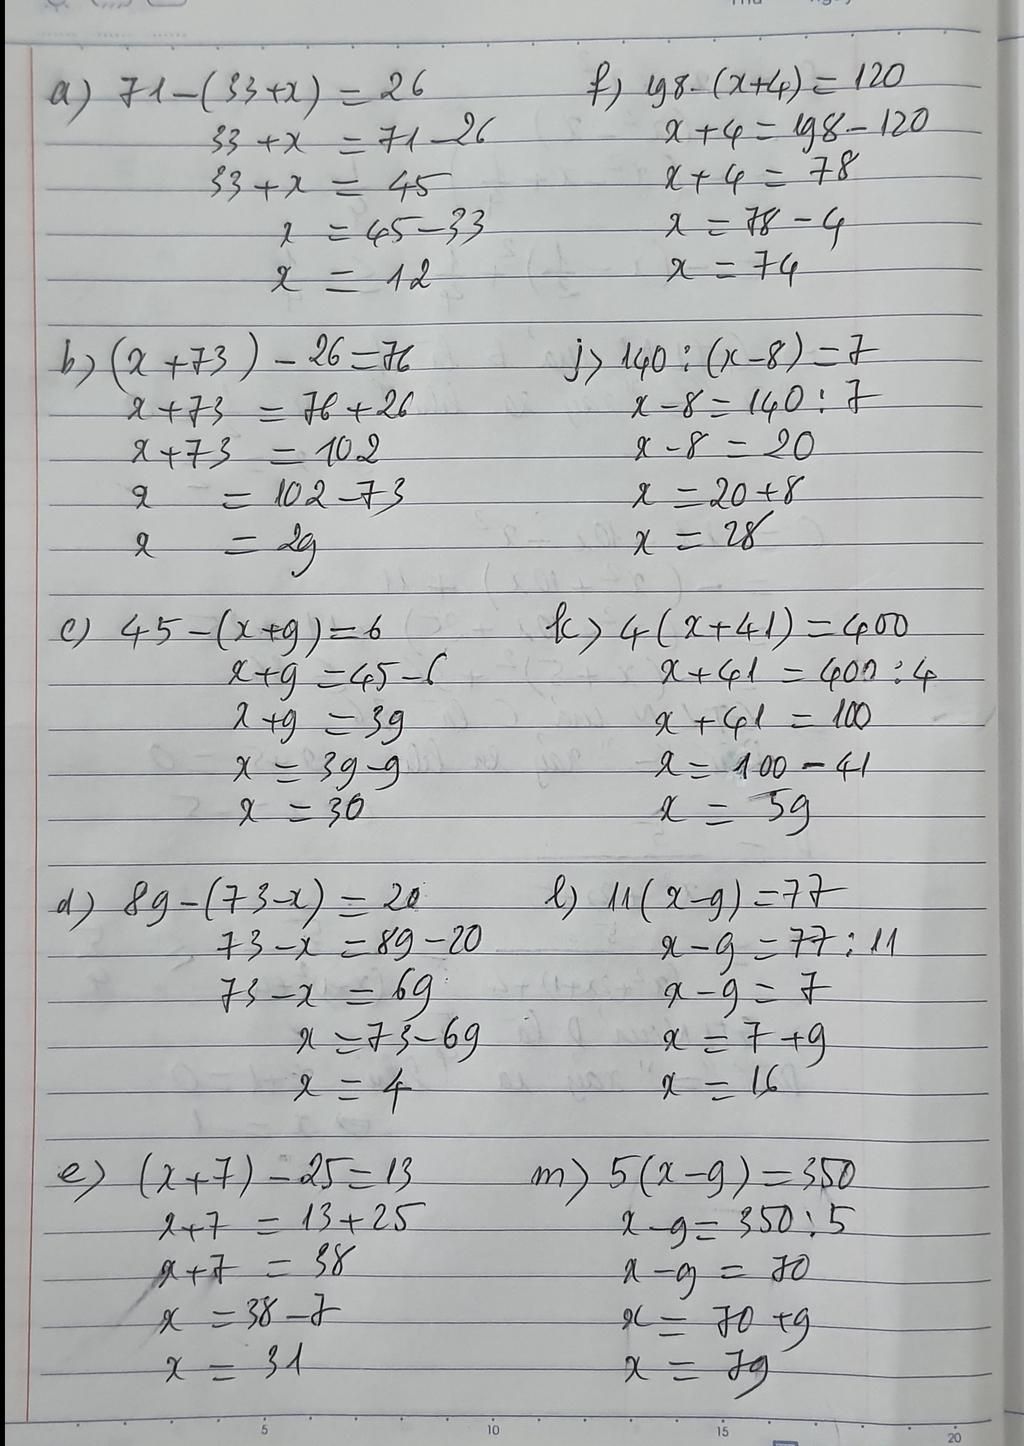 a) 71-(33+x) = 26
33+x = 71-26
33+x = 45
x = 45-33
x = 12
b) (x+73) - 26 = 76
x+73 = 76+26
x+73 = 102
x = 102-73
x = 29
c) 45-(x+9) = 6
x+9 = 45-6
x+9 = 39
x = 39-9
x = 30
d) 89-(73-x) = 20
73-x = 89-20
73-x = 69
x = 73-69
x = 4
e) (x+7) - 25 = 13
x+7 = 13+25
x+7 = 38
x = 38-7
x = 31
f) 198-(x+4) = 120
x+4 = 198-120
x+4 = 78
x = 78-4
x = 74
j) 140 : (x-8) = 7
x-8 = 140 : 7
x-8 = 20
x = 20+8
x = 28
k) 4(x+41) = 400
x+41 = 400 : 4
x+41 = 100
x = 100-41
x = 59
l) 11(x-9) = 77
x-9 = 77 : 11
x-9 = 7
x = 7+9
x = 16
m) 5(x-9) = 350
x-9 = 350 : 5
x-9 = 70
x = 70+9
x = 79
5 10 15 20